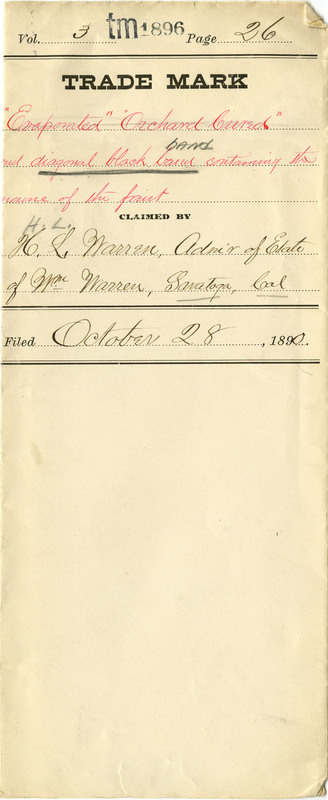 Vol. 3 tm 1896 Page 26
TRADE MARK
"Evaporated" "Orchard Cured"
and diagonal black band containing the
band
name of the fruit
CLAIMED BY
H. L.
H. L. Warren, Adm'r of Estate
of Wm Warren, Saratoga, Cal
Filed October 28, 1890.